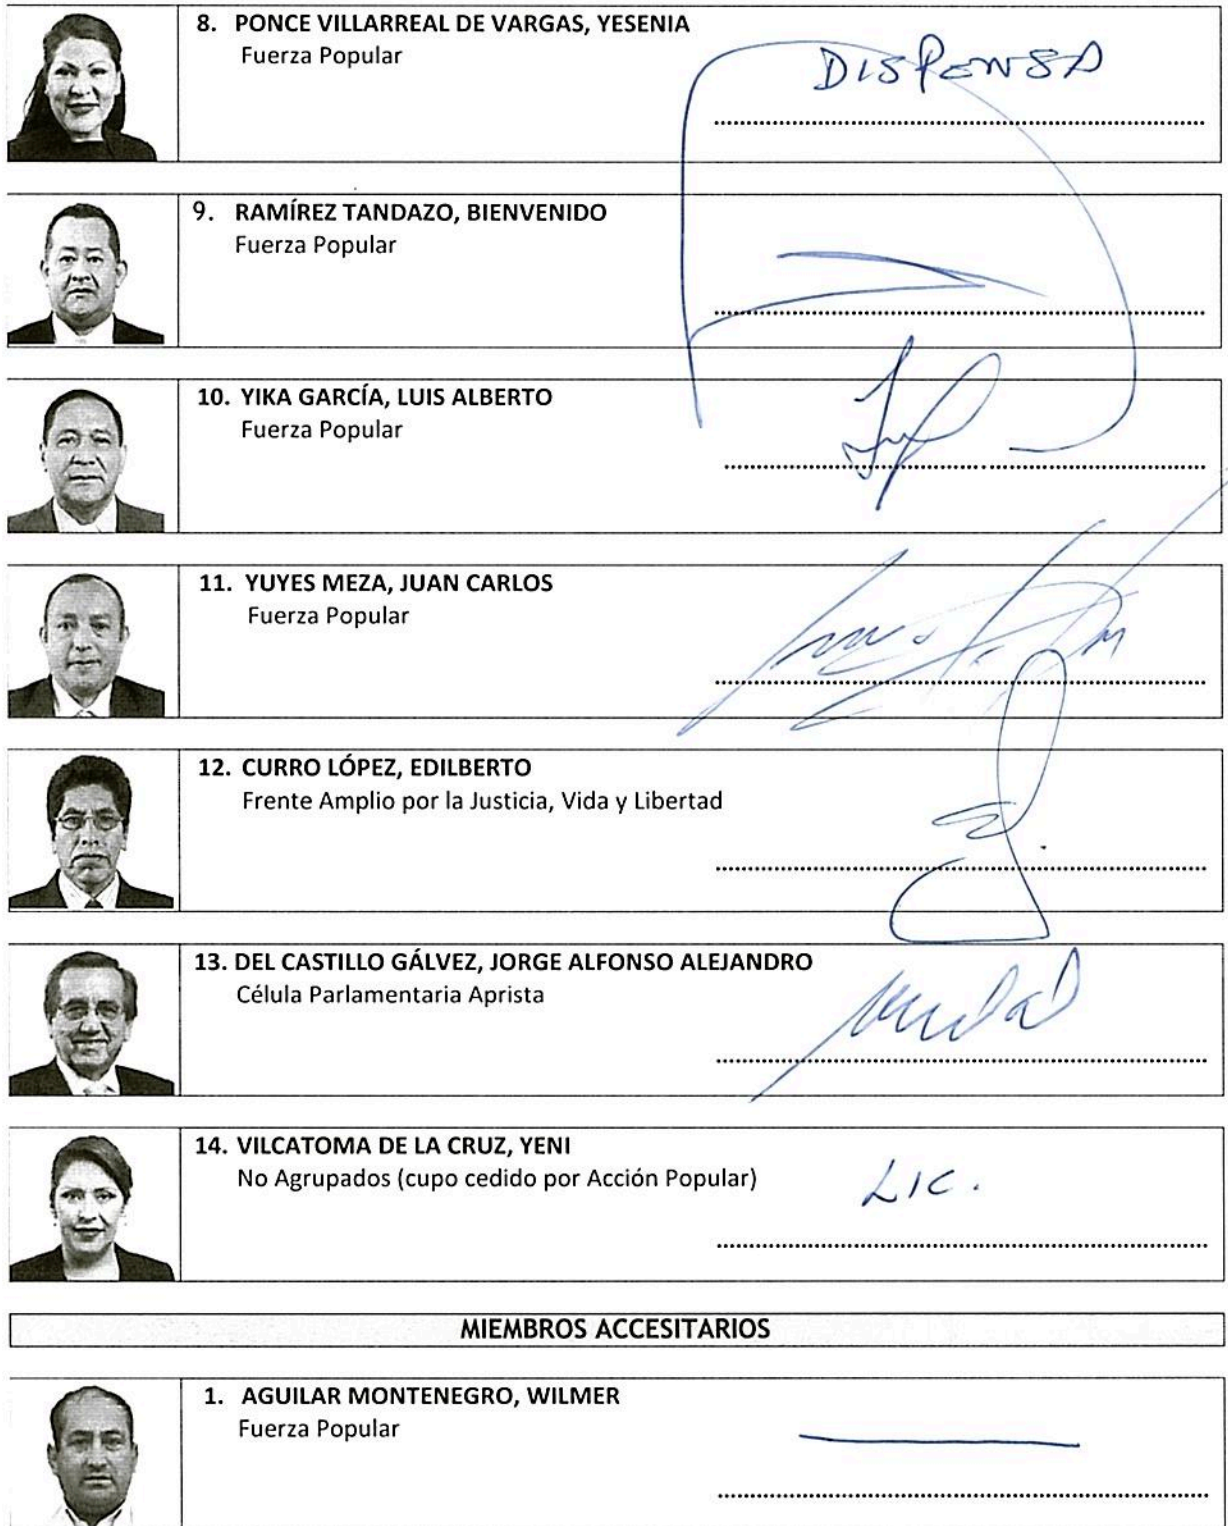 8. PONCE VILLARREAL DE VARGAS, YESENIA
Fuerza Popular
DISPENSA
9. RAMÍREZ TANDAZO, BIENVENIDO
Fuerza Popular
10. YIKA GARCÍA, LUIS ALBERTO
Fuerza Popular
11. YUYES MEZA, JUAN CARLOS
Fuerza Popular
12. CURRO LÓPEZ, EDILBERTO
Frente Amplio por la Justicia, Vida y Libertad
13. DEL CASTILLO GÁLVEZ, JORGE ALFONSO ALEJANDRO
Célula Parlamentaria Aprista
14. VILCATOMA DE LA CRUZ, YENI
No Agrupados (cupo cedido por Acción Popular)
LIC.
MIEMBROS ACCESITARIOS
1. AGUILAR MONTENEGRO, WILMER
Fuerza Popular